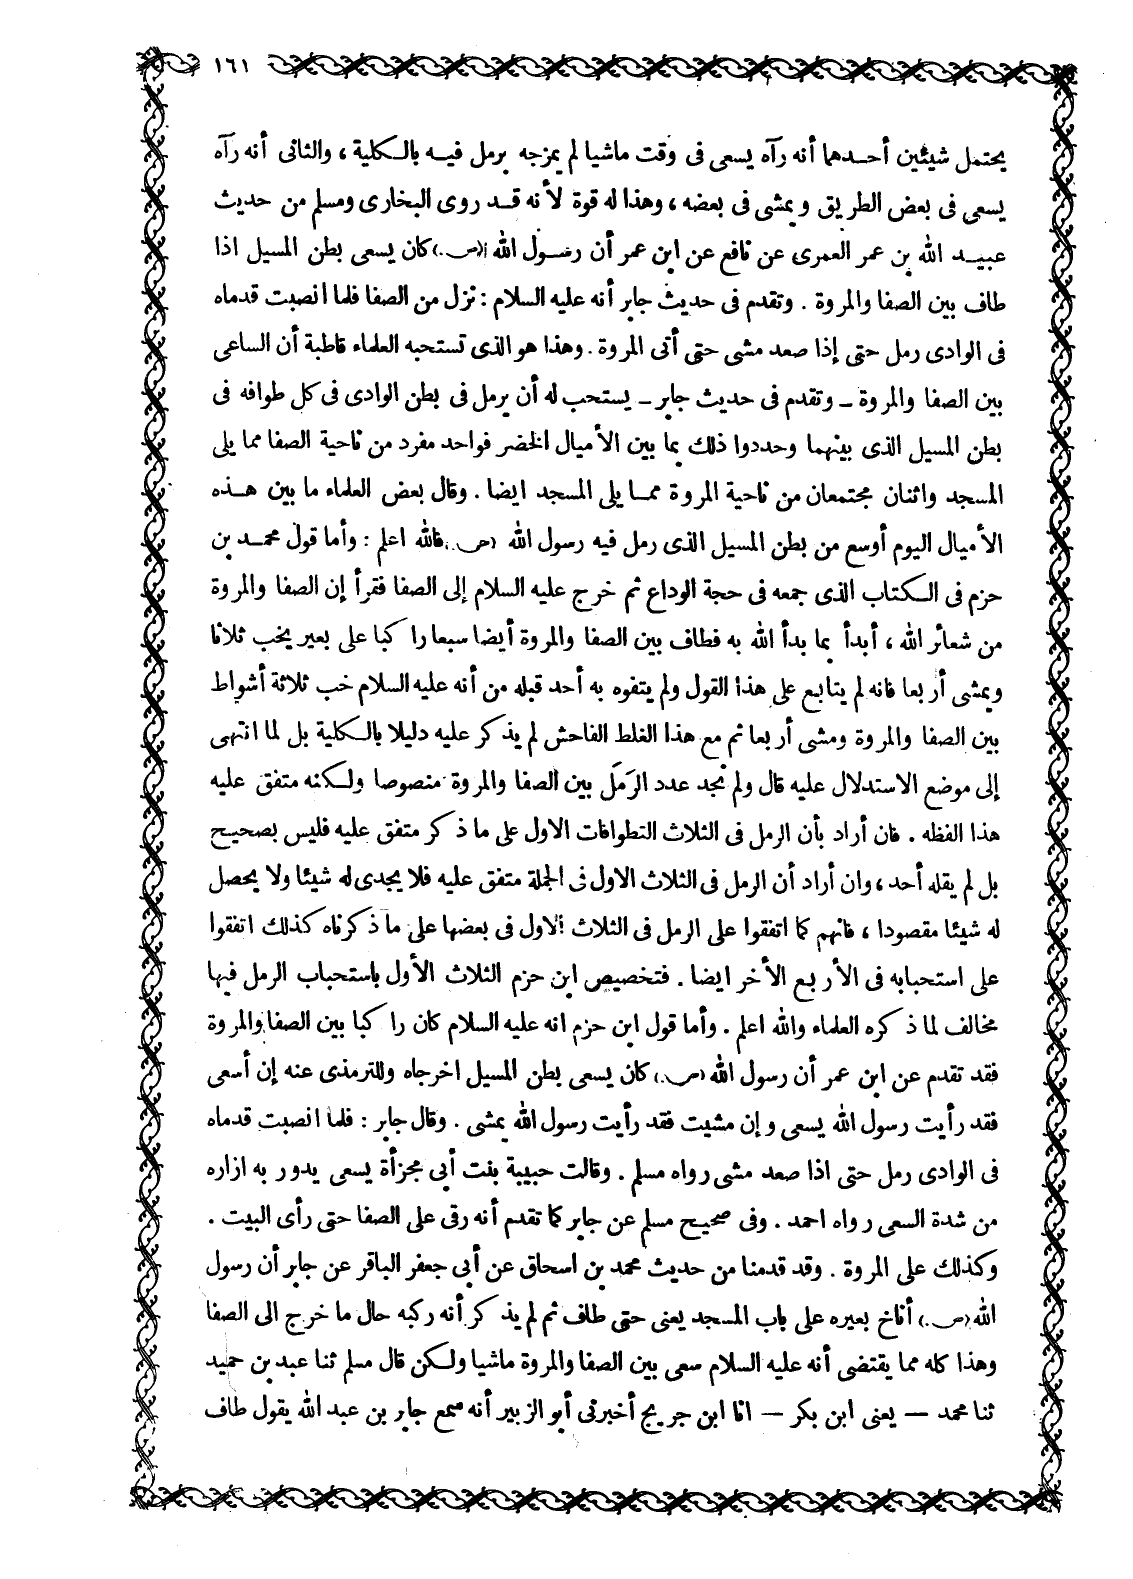 ١٦١
يحتمل شيئين أحدهما أنه رآه يسعى فى وقت ماشيا لم يمزجه برمل فيه بالكلية ، والثانى أنه رآه
يسعى فى بعض الطريق ويمشى فى بعضه ، وهذا له قوة لأنه قد روى البخارى ومسلم من حديث
عبيد الله بن عمر العمرى عن نافع عن ابن عمر أن رسول الله (ص.) كان يسعى بطن المسيل اذا
طاف بين الصفا والمروة . وتقدم فى حديث جابر أنه عليه السلام : نزل من الصفا فلما انصبت قدماه
فى الوادى رمل حتى إذا صعد مشى حتى أتى المروة . وهذا هو الذى تستحبه العلماء قاطبة أن الساعى
بين الصفا والمروة – وتقدم فى حديث جابر – يستحب له أن يرمل فى بطن الوادى فى كل طوافه فى
بطن المسيل الذى بينهما وحددوا ذلك بما بين الأميال الخضر فواحد مفرد من ناحية الصفا مما يلى
المسجد واثنان مجتمعان من ناحية المروة مما يلى المسجد ايضا . وقال بعض العلماء ما بين هذه
الأميال اليوم أوسع من بطن المسيل الذى رمل فيه رسول الله (ص.) فالله اعلم : وأما قول محمد بن
حزم فى الكتاب الذى جمعه فى حجة الوداع ثم خرج عليه السلام إلى الصفا فقرأ إن الصفا والمروة
من شعائر الله ، أبدأ بما بدأ الله به فطاف بين الصفا والمروة أيضا سبعا راكبا على بعير يخب ثلاثا
ويمشى أربعا فانه لم يتابع على هذا القول ولم يتفوه به أحد قبله من أنه عليه السلام خب ثلاثة أشواط
بين الصفا والمروة ومشى أربعا ثم مع هذا الغلط الفاحش لم يذكر عليه دليلا بالكلية بل لما انتهى
إلى موضع الاستدلال عليه قال ولم نجد عدد الرَمَل بين الصفا والمروة منصوصا ولكنه متفق عليه
هذا الفظه . فان أراد بأن الرمل فى الثلاث التطوافات الاول على ما ذكر متفق عليه فليس بصحيح
بل لم يقله أحد ، وان أراد أن الرمل فى الثلاث الاول فى الجملة متفق عليه فلا يجدى له شيئا ولا يحصل
له شيئا مقصودا ، فانهم كما اتفقوا على الرمل فى الثلاث الاول فى بعضها على ما ذكرناه كذلك اتفقوا
على استحبابه فى الأربع الأخر ايضا . فتخصيص ابن حزم الثلاث الأول باستحباب الرمل فيها
مخالف لما ذكره العلماء والله اعلم . وأما قول ابن حزم انه عليه السلام كان راكبا بين الصفا والمروة
فقد تقدم عن ابن عمر أن رسول الله (ص.) كان يسعى بطن المسيل اخرجاه وللترمذى عنه إن أسعى
فقد رأيت رسول الله يسعى وإن مشيت فقد رأيت رسول الله يمشى . وقال جابر : فلما انصبت قدماه
فى الوادى رمل حتى اذا صعد مشى رواه مسلم . وقالت حبيبة بنت أبى مجزأة يسعى يدور به ازاره
من شدة السعى رواه احمد . وفى صحيح مسلم عن جابر كما تقدم أنه رقى على الصفا حتى رأى البيت .
وكذلك على المروة . وقد قدمنا من حديث محمد بن اسحاق عن أبى جعفر الباقر عن جابر أن رسول
الله (ص.) أناخ بعيره على باب المسجد يعنى حتى طاف ثم لم يذكر أنه ركبه حال ما خرج الى الصفا
وهذا كله مما يقتضى أنه عليه السلام سعى بين الصفا والمروة ماشيا ولكن قال مسلم ثنا عبد بن حميد
ثنا محمد – يعنى ابن بكر – انا ابن جريج أخبرنى أبو الزبير أنه سمع جابر بن عبد الله يقول طاف